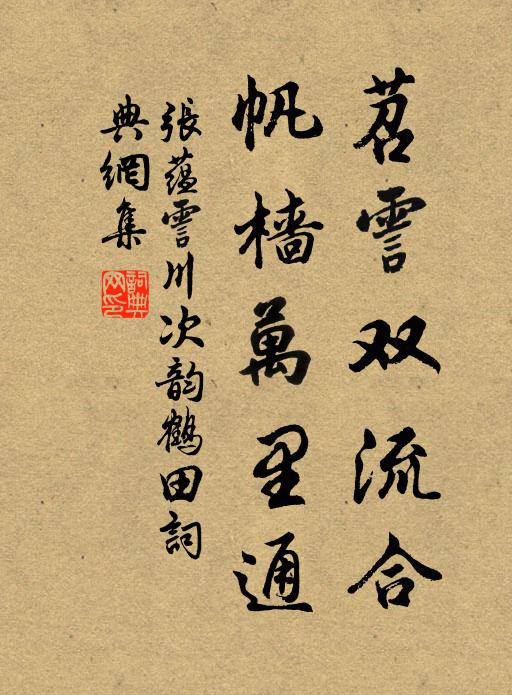 苕霅双流合
帆樯萬里通
張蘊霅川次韵鶴田詞
典網集
詞典網印